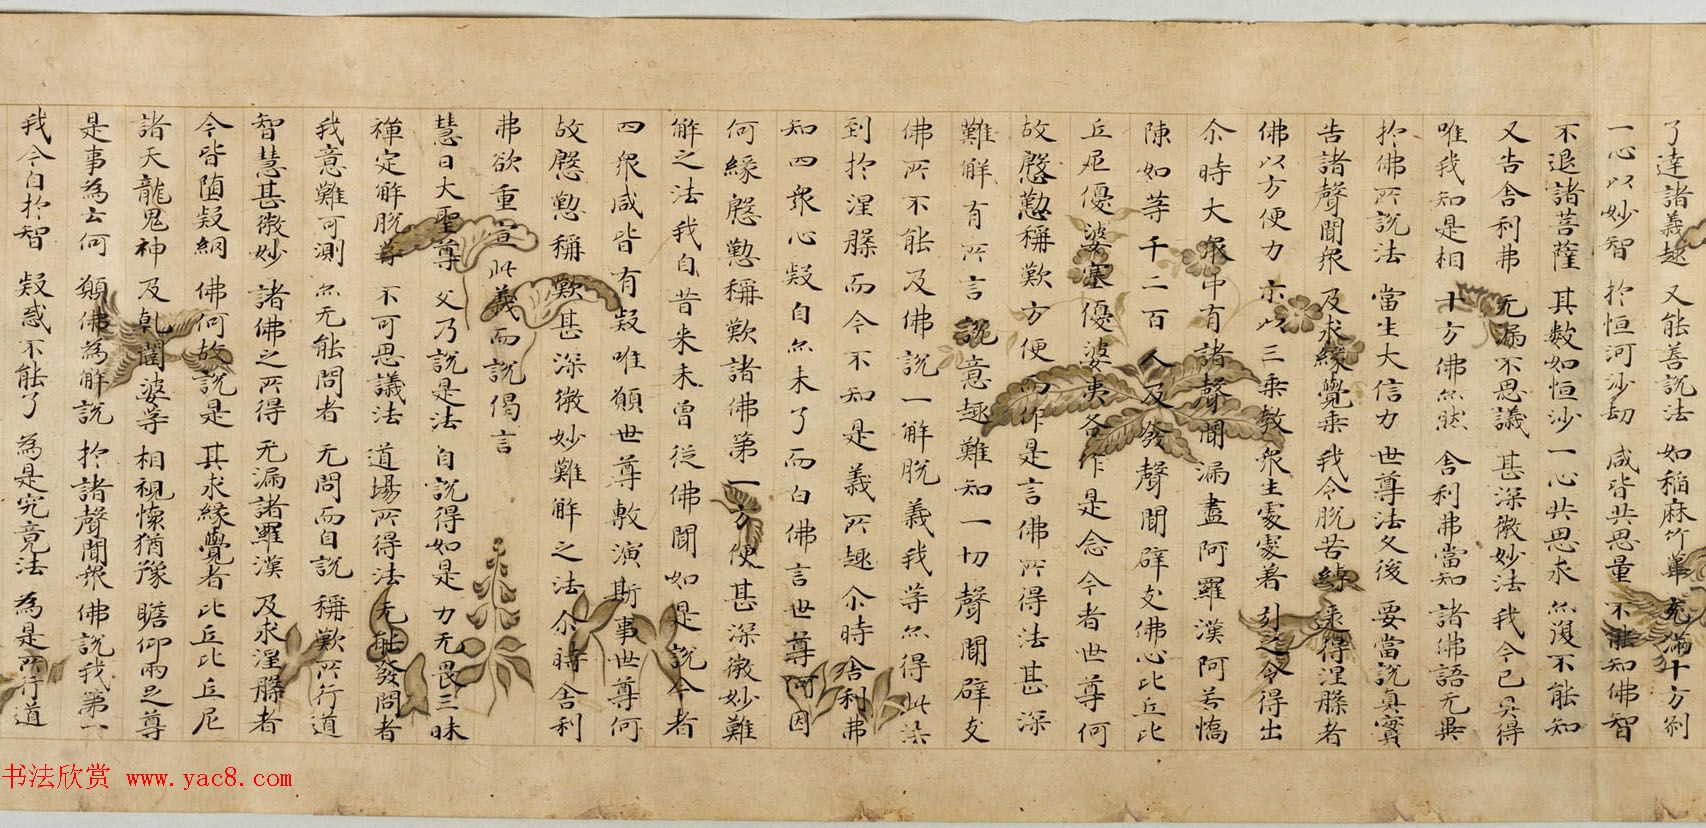 了達諸義趣 又能善說法 如稻麻竹葦 充滿十方剎
一心以妙智 於恒河沙劫 咸皆共思量 不能知佛智
不退諸菩薩 其數如恒沙 一心共思求 尒復不能知
又告舍利弗 无漏不思議 甚深微妙法 我今已具得
唯我知是相 十方佛尒然 舍利弗當知 諸佛語无異
於佛所說法 當生大信力 世尊法久後 要當說真實
告諸聲聞眾 及求緣覺乘 我令脫苦縛 逮得涅槃者
佛以方便力 示以三乘教 眾生處處著 引之令得出
尒時大眾中有諸聲聞漏盡阿羅漢阿若憍
陳如等千二百人及發聲聞辟支佛心比丘比
丘尼優婆塞優婆夷各作是念今者世尊何
故慇懃稱歎方便而作是言佛所得法甚深
難解有所言說意趣難知一切聲聞辟支
佛所不能及佛說一解脫義我等尒得此法
到於涅槃而今不知是義所趣尒時舍利弗
知四眾心疑自尒未了而白佛言世尊何因
何緣慇懃稱歎諸佛第一方便甚深微妙難
解之法我自昔來未曾從佛聞如是說今者
四眾咸皆有疑唯願世尊敷演斯事世尊何
故慇懃稱歎甚深微妙難解之法尒時舍利
弗欲重宣此義而說偈言
慧日大聖尊 久乃說是法 自說得如是 力无畏三昧
禪定解脫等 不可思議法 道場所得法 无能發問者
我意難可測 尒无能問者 无問而自說 稱歎所行道
智慧甚微妙 諸佛之所得 无漏諸羅漢 及求涅槃者
今皆墮疑網 佛何故說是 其求緣覺者 比丘比丘尼
諸天龍鬼神 及乾闥婆等 相視懷猶豫 瞻仰兩足尊
是事為云何 願佛為解說 於諸聲聞眾 佛說我第一
我今自於智 疑惑不能了 為是究竟法 為是所行道
书法欣赏 www.yac8.com